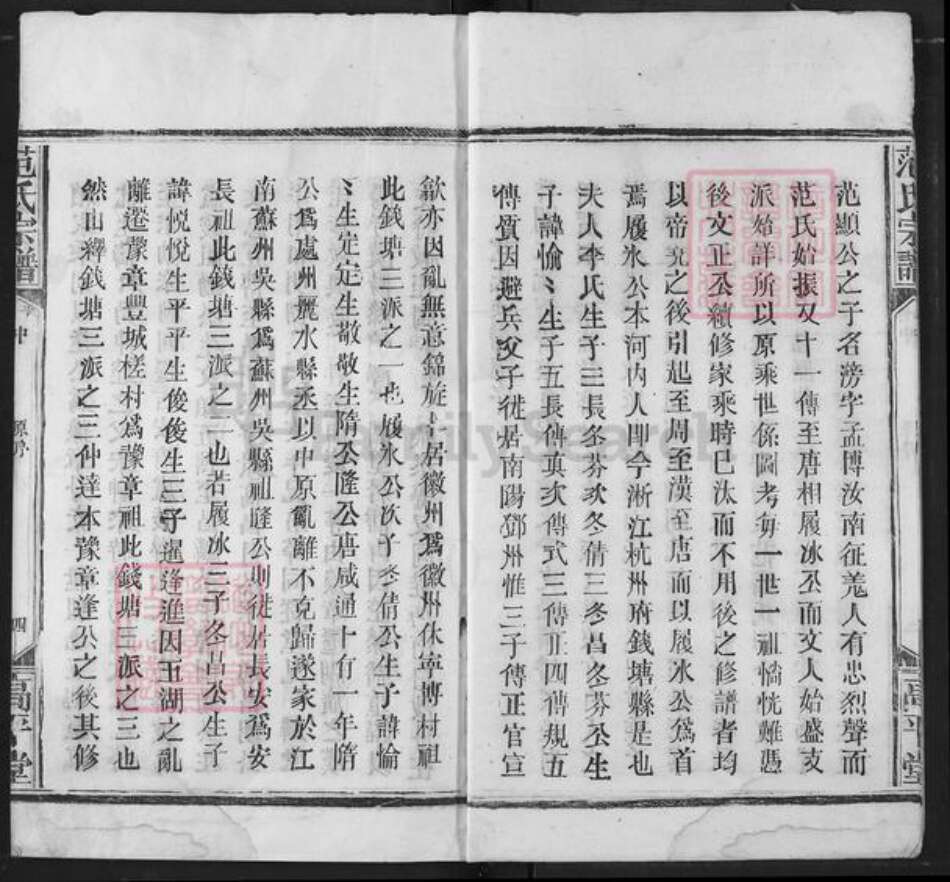 范氏宗譜
高平堂
范顯公之子名滂字孟博汝南征羗人有忠烈聲而
范氏始振又十一傳至唐相履冰公而文人始盛支
派始詳所以原乘世係圖考每一世一祖惝恍難憑
後文正公續修家乘時已汰而不用後之修譜者均
以帝堯之後引起至周至漢至唐而以履氷公爲首
焉履氷公本河内人即今浙江杭州府錢塘縣是也
夫人李氏生子三長冬芬次冬倩三冬昌冬芬公生
子諱愉〻生子五長傳真次傳式三傳正四傳規五
傳質因避兵父子徙居南陽鄧州惟三子傳正官宣
歙亦因亂無意錦旋卜居徽州爲徽州休寧博村祖
此錢塘三派之一也履氷公次子冬倩公生子諱愉
〻生定定生敬敬生隋公隆公唐咸通十有一年隋
公爲處州麗水縣丞以中原亂離不克歸遂家於江
南蘇州吳縣爲蘇州吳縣祖隆公則徙居長安爲安
長祖此錢塘三派之二也若履冰三子冬昌公生子
諱悅悅生平平生俊俊生三子暹逢進因五湖之亂
離遷豫章豐城槎村爲豫章祖此錢塘三派之三也
然山釋錢塘三派之三仲達本豫章逢公之後其修
范氏宗譜
四
高平堂
FamilySearch